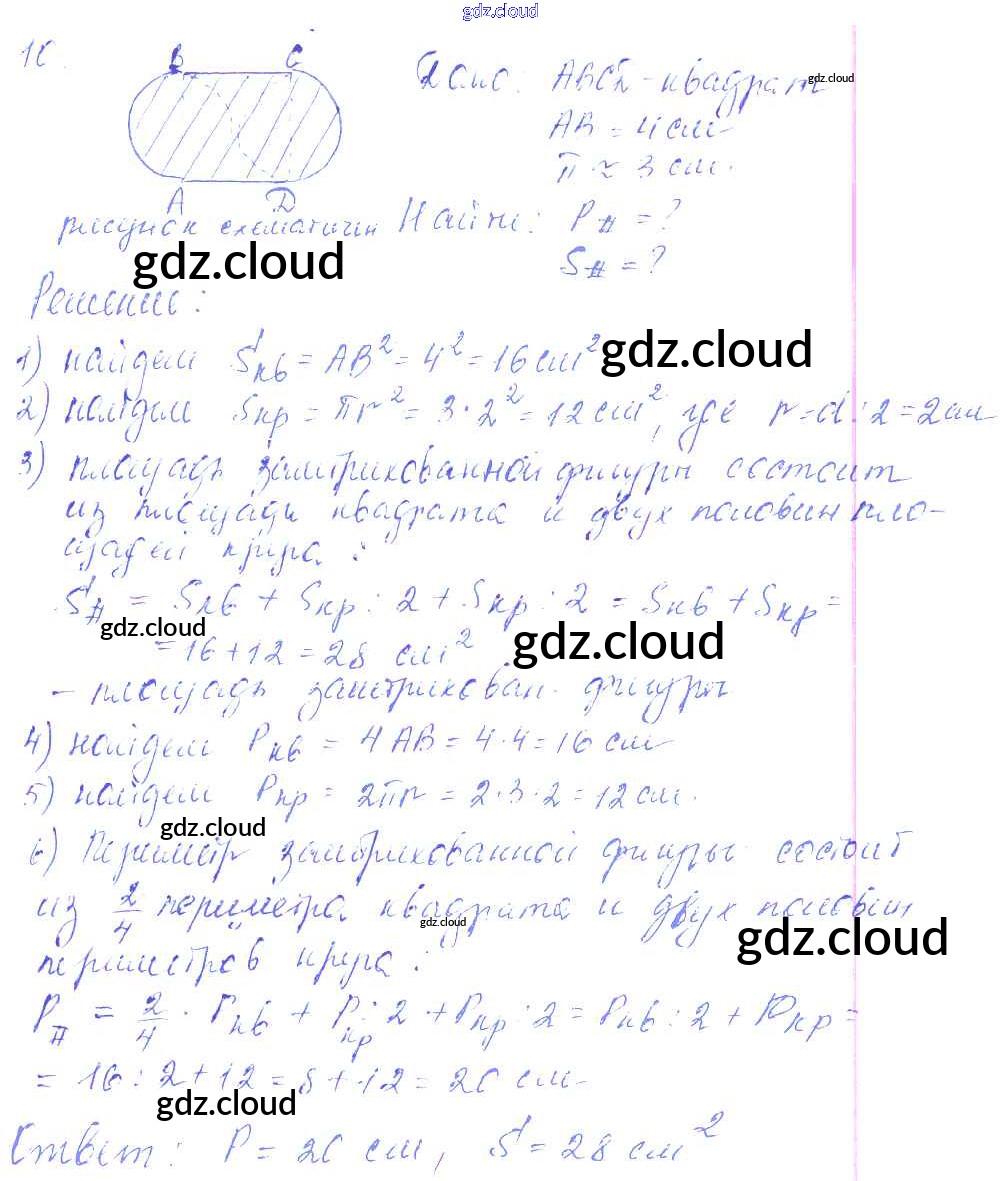 gdz.cloud
10.
B C
Дано: ABCD - квадрат
gdz.cloud
AB = 4 см
π ≈ 3 см.
A D
рисунок схематичен Найти: P = ?
gdz.cloud
S = ?
Решение:
1) найдем Sкв = AB² = 4² = 16 см²
gdz.cloud
2) найдем Sкр = πr² = 3·2² = 12 см², где r = d : 2 = 2 см
3) площадь заштрихованной фигуры состоит
из площади квадрата и двух половин пло-
щадей круга:
S = Sкв + Sкр : 2 + Sкр : 2 = Sкв + Sкр =
gdz.cloud
= 16 + 12 = 28 см²
gdz.cloud
- площадь заштрихован. фигуры
4) найдем Pкв = 4AB = 4·4 = 16 см
5) найдем Pкр = 2πr = 2·3·2 = 12 см.
gdz.cloud
6) Периметр заштрихованной фигуры состоит
из 2/4 периметра квадрата и двух половин
gdz.cloud
gdz.cloud
периметров круга:
P = 2/4 · Pкв + Pкр : 2 + Pкр : 2 = Pкв : 2 + Pкр =
= 16 : 2 + 12 = 8 + 12 = 20 см
gdz.cloud
Ответ: P = 20 см, S = 28 см²